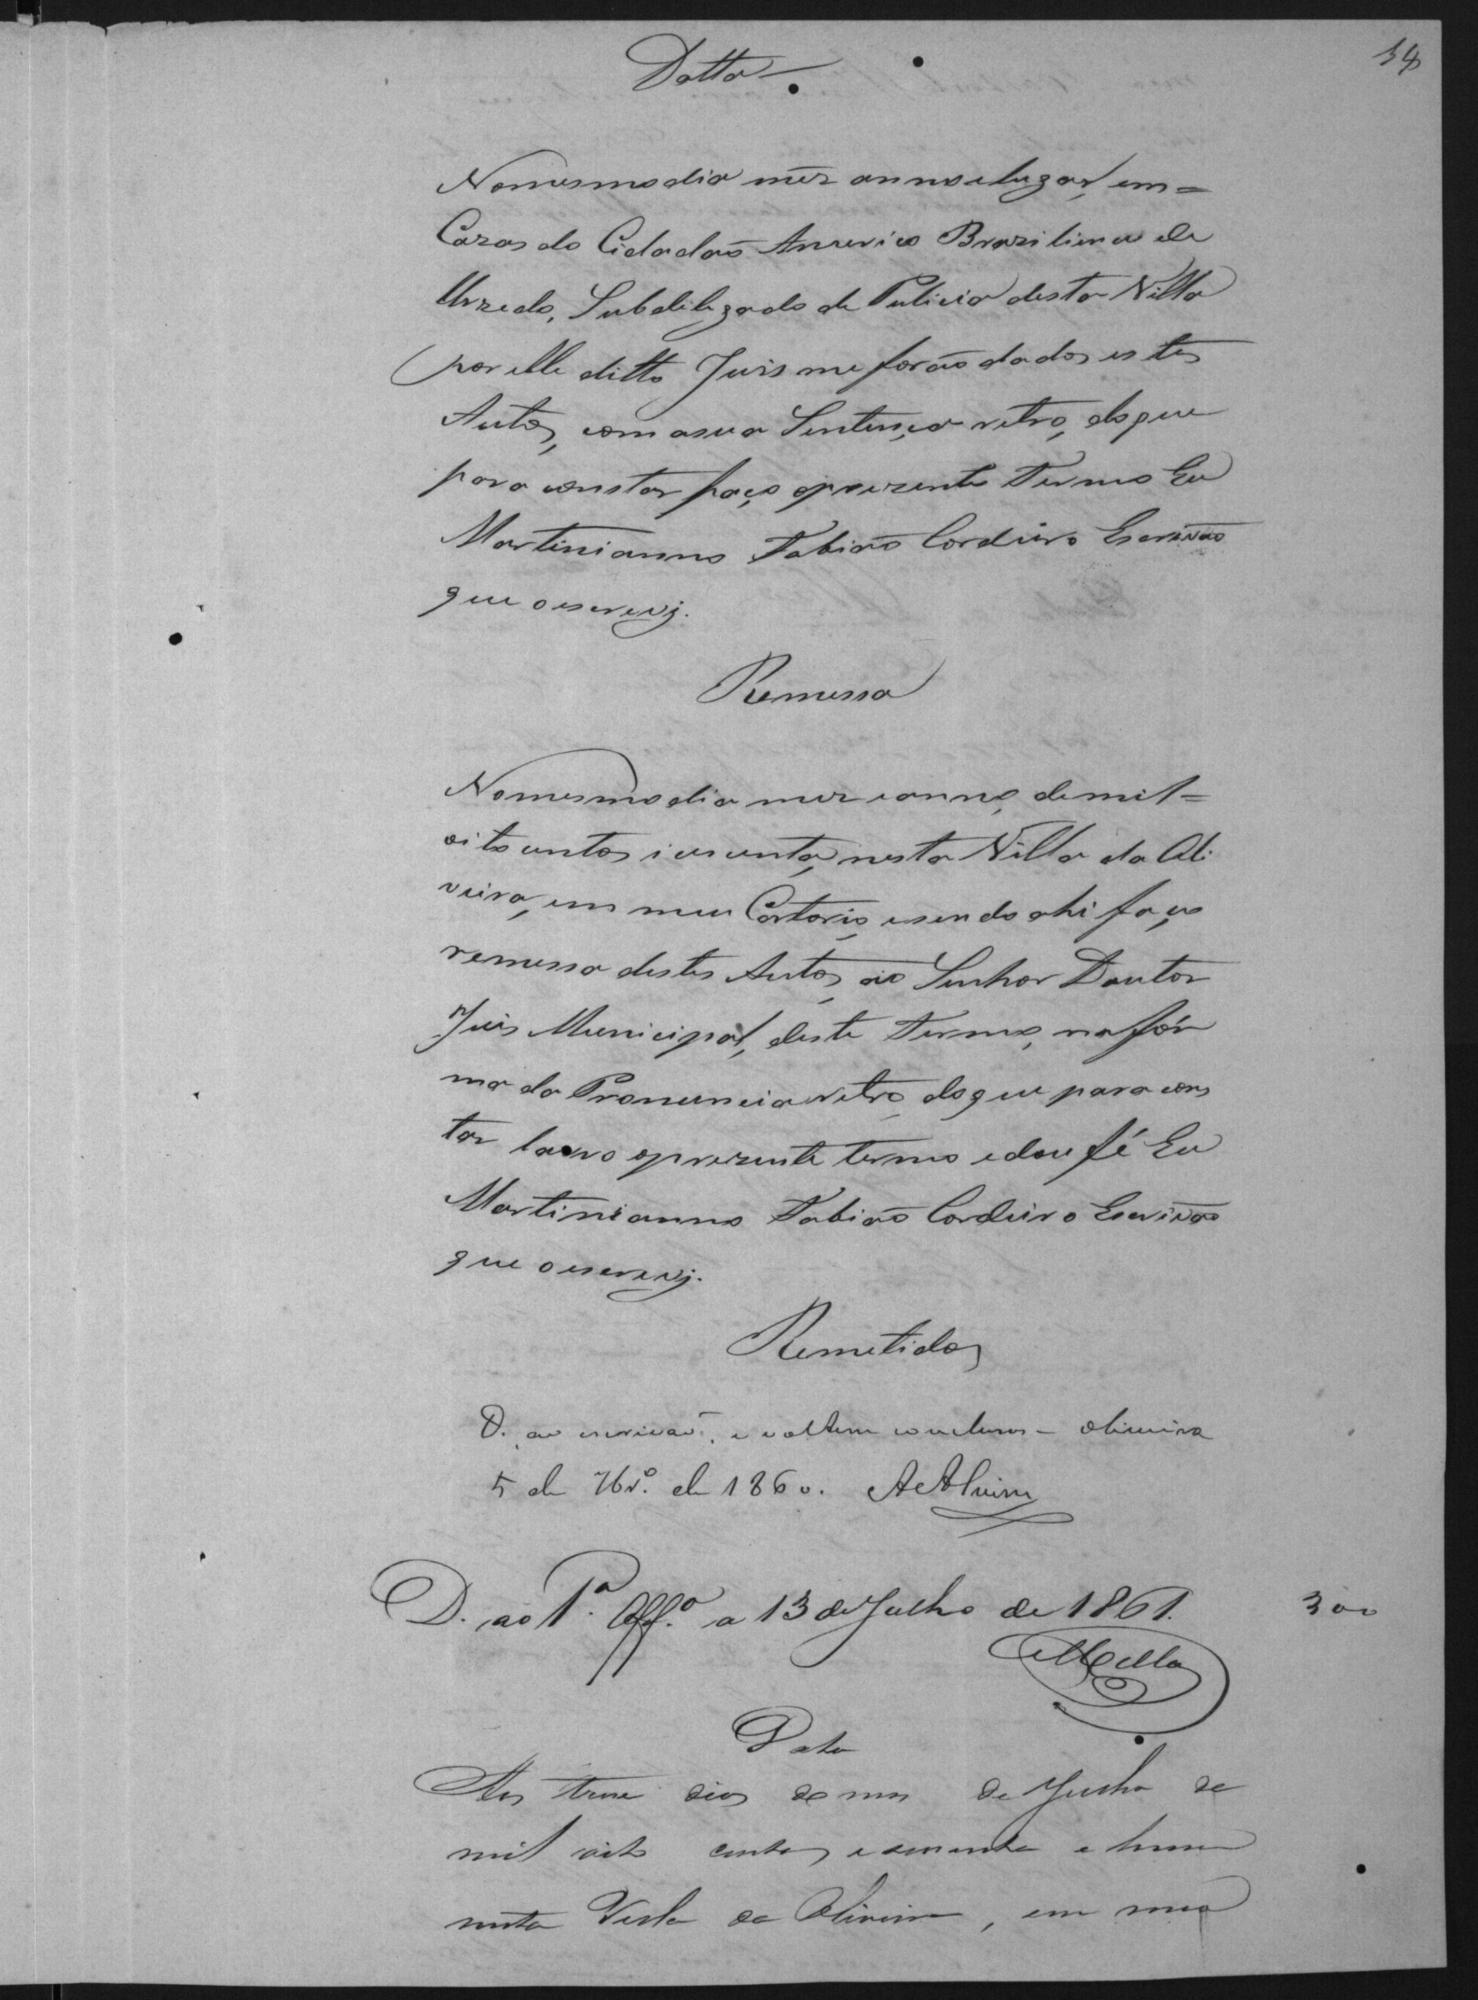 34
Datta
No mesmo dia mêz anno e lugar, em=
Caza do Cidadaõ Americo Braziliano de
Urzedo, Subdelegado de Pulicia desta Villa
por elle ditto Juis me foraõ dados estes
Autos, com a sua Sentença retro, do que
para constar faço o prezente Termo Eu
Martinianno Fabiaõ Cordeiro Escrivaõ
que o escrevj.
Remessa
No mesmo dia mez e anno, de mil=
oito centos i cecenta, nesta Villa da Oli
veira, em meu Cartorio, e sendo ahi faço
remessa destes Autos, ao Senhor Doutor
Juis Municipal, deste Termo, na fór
ma da Pronuncia retro, do que para cons
tar lavro o prezente termo e dou fé Eu
Martinianno Fabiaõ Cordeiro Escrivaõ
que o escrevj.
Remetidos
D. ao escrivaõ, e voltem conclusos - Oliveira
5 de 7br.º de 1860. A Alvim
D. ao 1.º Off.º a 13 de Julho de 1861. 300
Mello
Data
Aos treze dias do mes de Julho de
mil oito centos e sessenta e hum
nesta Villa da Oliveira, em meo